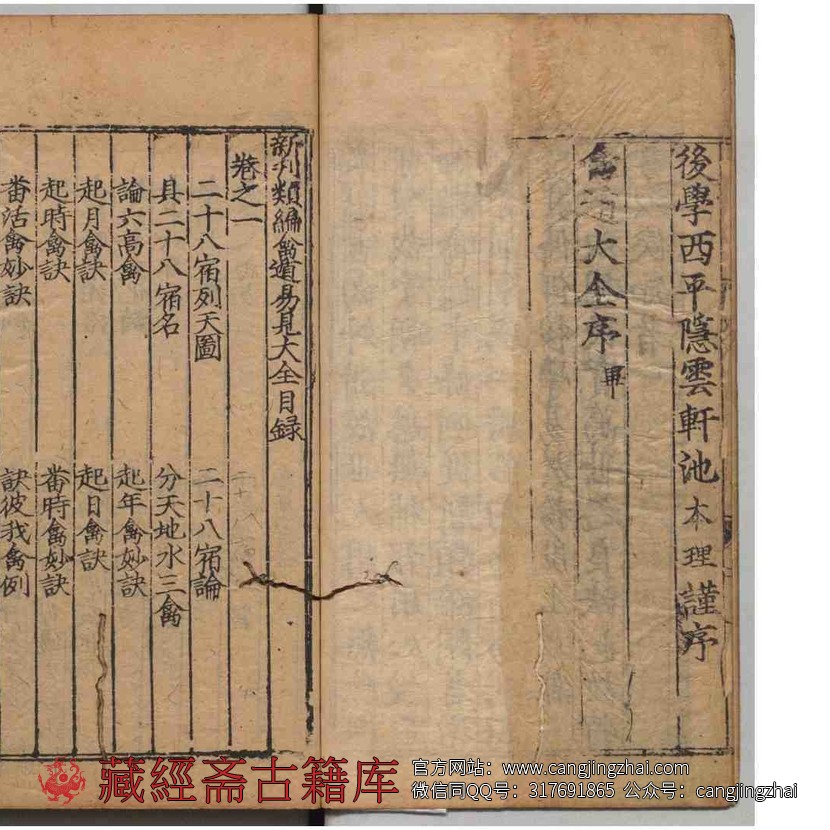 後學西平隱雲軒池本理謹序
禽遁大全序畢
新刊類編禽遁易見大全目録
卷之一
二十八宿列天圖
二十八宿論
具二十八宿名
分天地水三禽
論六高禽
起年禽妙訣
起月禽訣
起日禽訣
起時禽訣
番時禽妙訣
番活禽妙訣
訣彼我禽例
藏經斋古籍库
官方网站：www.cangjingzhai.com
微信同QQ号：317691865 公众号：cangjingzhai